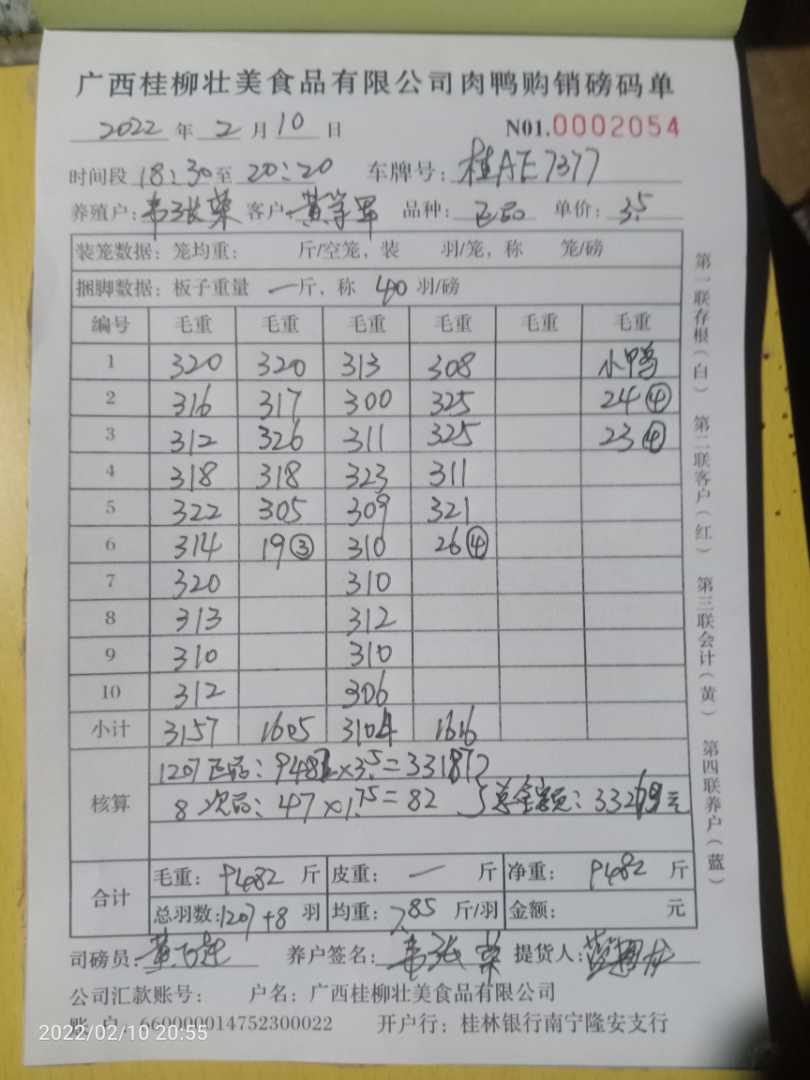 广西桂柳壮美食品有限公司肉鸭购销磅码单
2022 年 2 月 10 日 N01.0002054
时间段 18:30至 20:20 车牌号: 桂AE7377
养殖户: 韦张荣 客户 黄 品种: 正品 单价: 3.5
装笼数据: 笼均重: 斤/空笼, 装 羽/笼, 称 笼/磅
捆脚数据: 板子重量 一斤, 称 40 羽/磅
编号 毛重 毛重 毛重 毛重 毛重 毛重
1 320 320 313 308 小鸭
2 316 317 300 325 24④
3 312 326 311 325 23④
4 318 318 323 311
5 322 305 309 321
6 314 19③ 310 26④
7 320 310
8 313 312
9 310 310
10 312 306
小计 3157 1605 3104 1616
核算 1207正品: 9482×3.5=33187
8 次品: 47×1.75=82 总金额: 33269元
合计 毛重: 9482 斤 皮重: 一 斤 净重: 9482 斤
总羽数:1207+8 羽 均重: 7.85 斤/羽 金额: 元
司磅员: 黄 养户签名: 韦张荣 提货人: 蓝
公司汇款账号: 户名: 广西桂柳壮美食品有限公司
账 户: 660000014752300022 开户行: 桂林银行南宁隆安支行
2022/02/10 20:55
第一联存根(白) 第二联客户(红) 第三联会计(黄) 第四联养户(蓝)